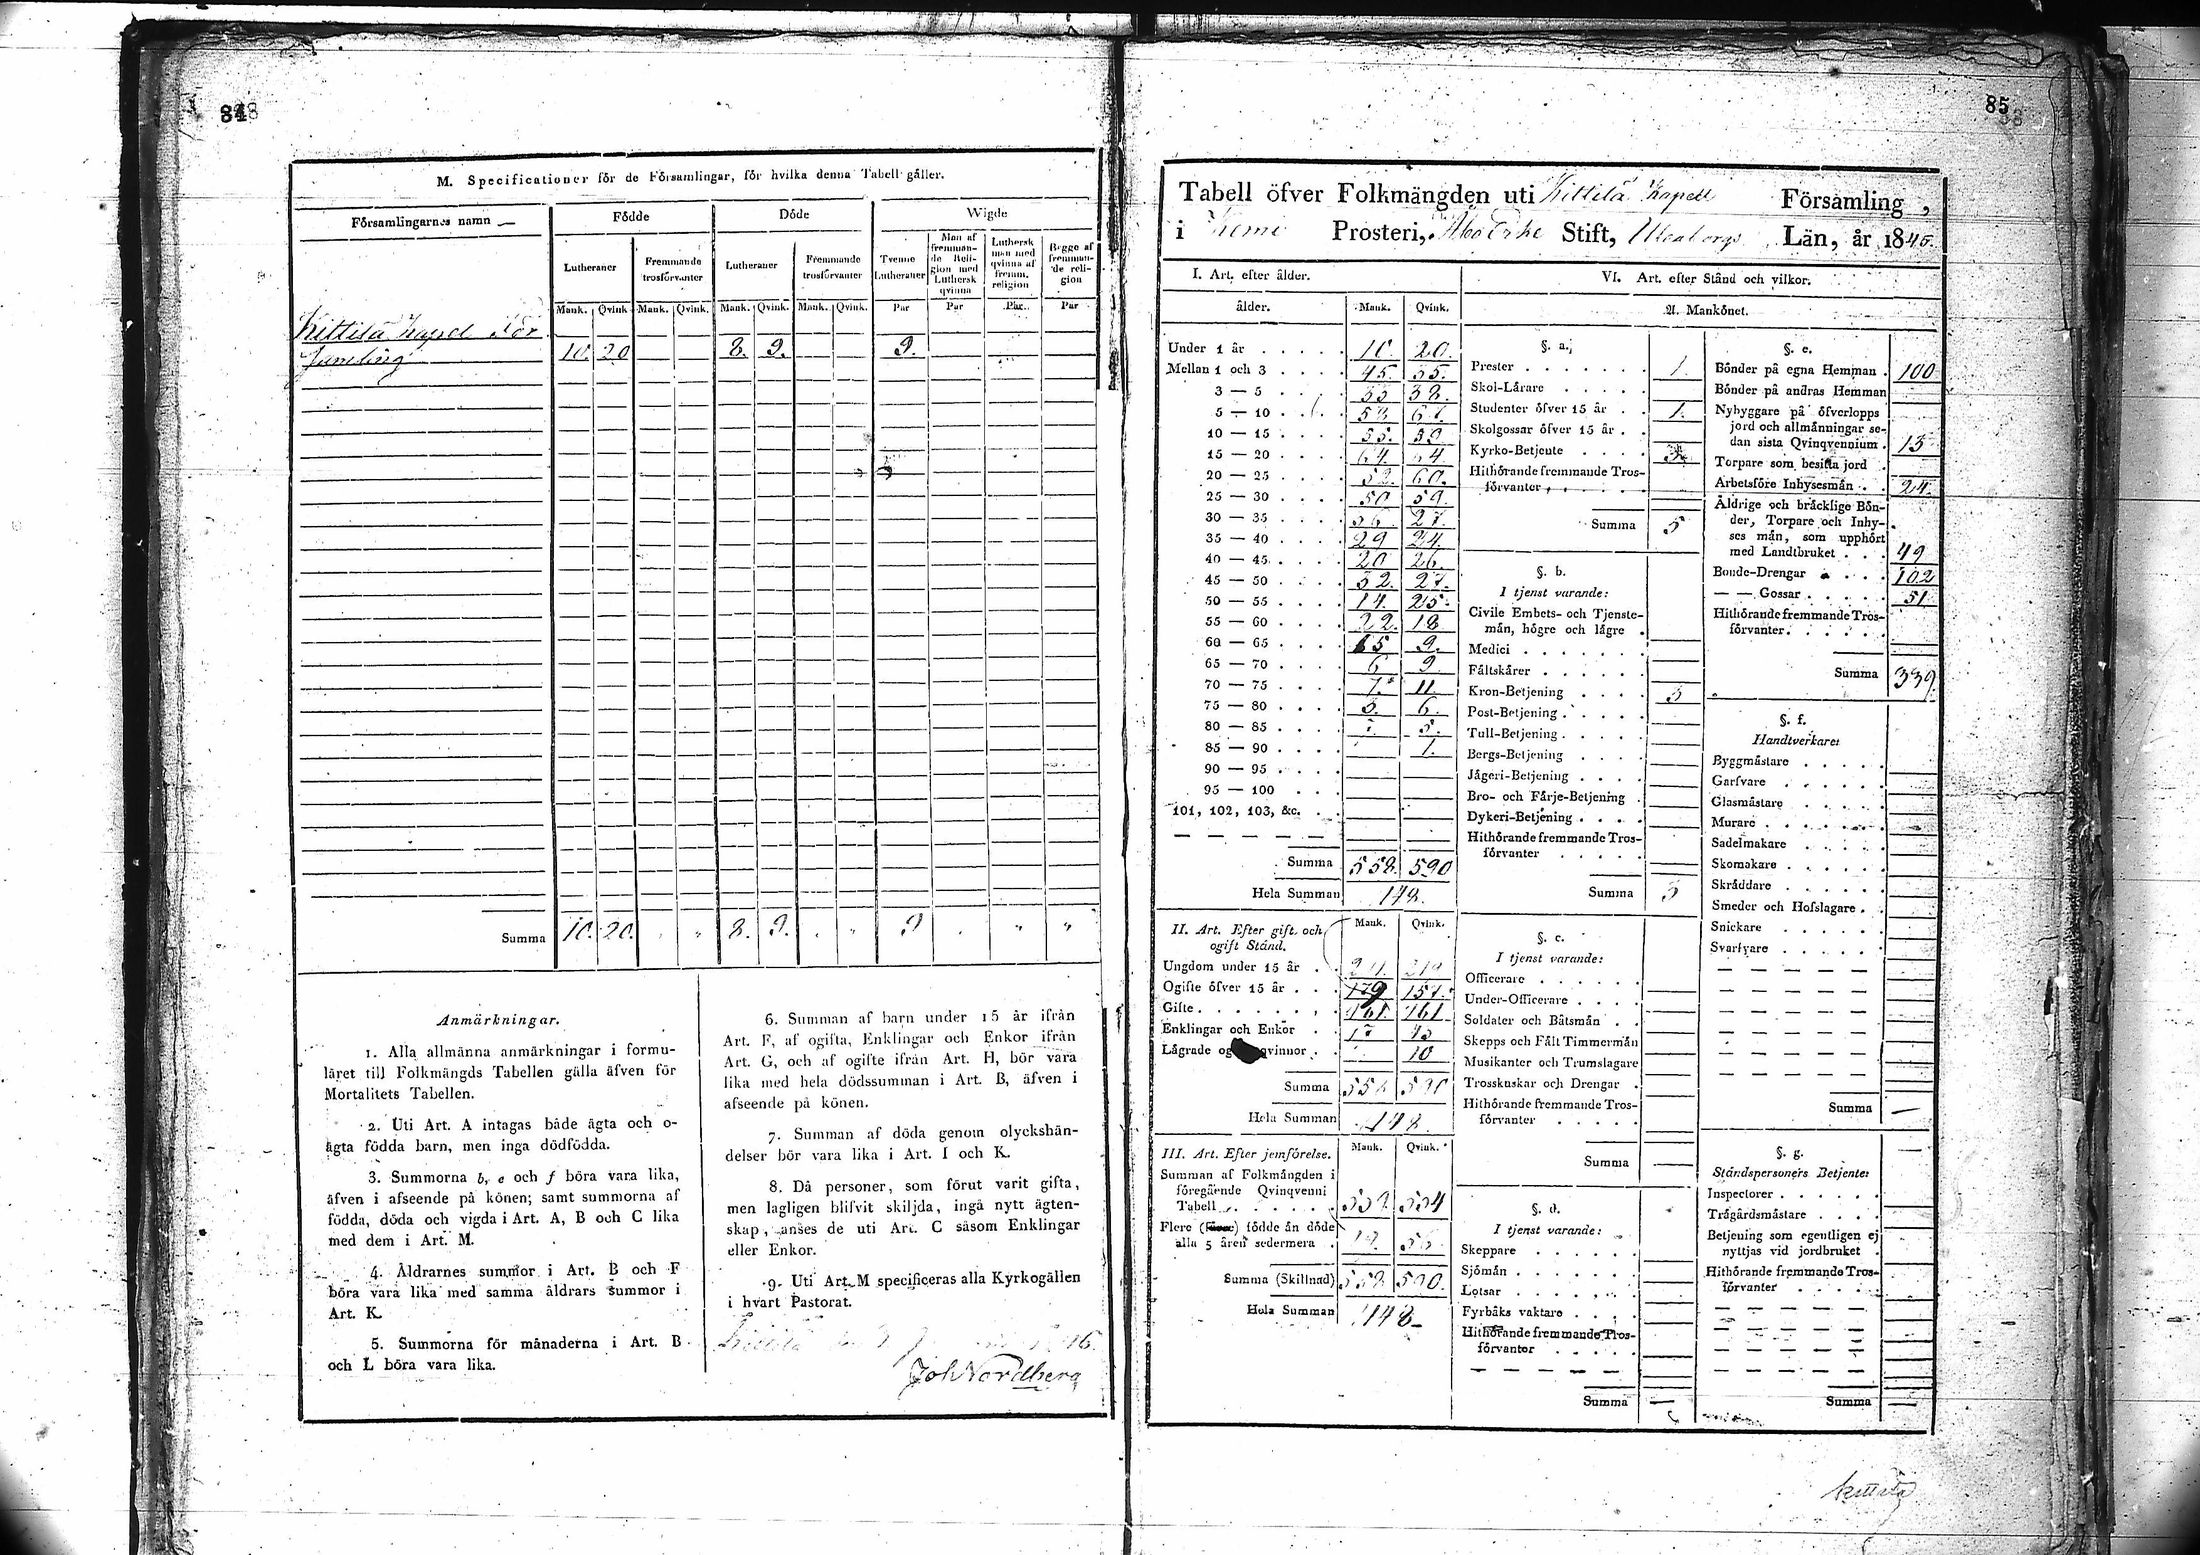 848
M. Specificationer för de Församlingar, för hvilka denna Tabell gäller.
Församlingarnes namn
Födde
Döde
Wigde
Lutheraner
Fremmande trosförvanter
Lutheraner
Fremmande trosförvanter
Tvenne Lutheraner
Man af fremmande Religion med Luthersk qvinna
Luthersk man med qvinna af fremm. religion
Begge af fremmande religion
Mank. Qvink. Mank. Qvink. Mank. Qvink. Mank. Qvink. Par Par Par Par
Kittilä Kapell För
samling 10. 20 8. 9. 9.
Summa 10. 20. 8. 9. 9
Anmärkningar.
1. Alla allmänna anmärkningar i formu-
läret till Folkmängds Tabellen gälla äfven för
Mortalitets Tabellen.
2. Uti Art. A intagas både ägta och o-
ägta födda barn, men inga dödfödda.
3. Summorna b, e och f böra vara lika,
äfven i afseende på könen; samt summorna af
födda, döda och vigda i Art. A, B och C lika
med dem i Art. M.
4. Åldrarnes summor i Art. B och F
böra vara lika med samma åldrars summor i
Art. K.
5. Summorna för månaderna i Art. B
och L böra vara lika.
6. Summan af barn under 15 år ifrån
Art. F, af ogifta, Enklingar och Enkor ifrån
Art. G, och af ogifte ifrån Art. H, bör vara
lika med hela dödssumman i Art. B, äfven i
afseende på könen.
7. Summan af döda genom olyckshän-
delser bör vara lika i Art. I och K.
8. Då personer, som förut varit gifta,
men lagligen blifvit skiljda, ingå nytt ägten-
skap, anses de uti Art. C såsom Enklingar
eller Enkor.
9. Uti Art. M specificeras alla Kyrkogällen
i hvart Pastorat.
Joh Nordberg
85
Tabell öfver Folkmängden uti Kittilä Kapell Församling,
i Kemi Prosteri, Åbo Erke Stift, Uleåborgs Län, år 1845.
I. Art. efter ålder.
ålder. Mank. Qvink.
Under 1 år 10 20.
Mellan 1 och 3 45. 35.
3 — 5 33 38.
5 — 10
10 — 15
15 — 20
20 — 25 60.
25 — 30 50 59.
30 — 35 36 27.
35 — 40 29 24.
40 — 45 20 26.
45 — 50 32. 27.
50 — 55 14. 25.
55 — 60 22. 18
60 — 65 9.
65 — 70 6 9
70 — 75 7. 11.
75 — 80 3. 6.
80 — 85
85 — 90 1.
90 — 95
95 — 100
101, 102, 103, &c.
Summa 558. 590
Hela Summan 1148.
II. Art. Efter gift. och ogift Stånd.
Mank. Qvink.
Ungdom under 15 år 219
Ogifte öfver 15 år 179 157.
Gifte 161. 161.
Enklingar och Enkor
Lägrade qvinnor 10
Summa 558 590
Hela Summan 1148
III. Art. Efter jemförelse. Mank. Qvink.
Summan af Folkmängden i
föregående Qvinqvenni
Tabell 534
Flere födde än döde
alla 5 åren sedermera
Summa (Skillnad) 558. 590.
Hela Summan 1148
VI. Art. efter Stånd och vilkor.
A. Mankönet.
§. a.
Prester 1.
Skol-Lärare
Studenter öfver 15 år 1.
Skolgossar öfver 15 år
Kyrko-Betjente 3.
Hithörande fremmande Tros-
förvanter
Summa 5
§. b.
I tjenst varande:
Civile Embets- och Tjenste-
män, högre och lägre
Medici
Fältskärer
Kron-Betjening 3
Post-Betjening
Tull-Betjening
Bergs-Betjening
Jägeri-Betjening
Bro- och Färje-Betjening
Dykeri-Betjening
Hithörande fremmande Tros-
förvanter
Summa 3
§. c.
I tjenst varande:
Officerare
Under-Officerare
Soldater och Båtsmän
Skepps och Fält Timmermän
Musikanter och Trumslagare
Trosskuskar och Drengar
Hithörande fremmande Tros-
förvanter
Summa —
§. d.
I tjenst varande:
Skeppare
Sjömän
Lotsar
Fyrbåks vaktare
Hithörande fremmande Tros-
förvanter
Summa —
§. e.
Bönder på egna Hemman 100
Bönder på andras Hemman
Nybyggare på öfverlopps
jord och allmänningar se-
dan sista Qvinqvennium 13
Torpare som besitta jord
Arbetsföre Inhysesmän 24.
Åldrige och bräcklige Bön-
der, Torpare och Inhy-
ses män, som upphört
med Landtbruket 49
Bonde-Drengar 102
— — Gossar 51
Hithörande fremmande Tros-
förvanter
Summa 339.
§. f.
Handtverkare
Byggmästare
Garfvare
Glasmästare
Murare
Sadelmakare
Skomakare
Skräddare
Smeder och Hofslagare
Snickare
Svarfvare
Summa —
§. g.
Ståndspersoners Betjente:
Inspectorer
Trägårdsmästare
Betjening som egentligen ej
nyttjas vid jordbruket
Hithörande fremmande Tros-
förvanter
Summa —
Kittilä